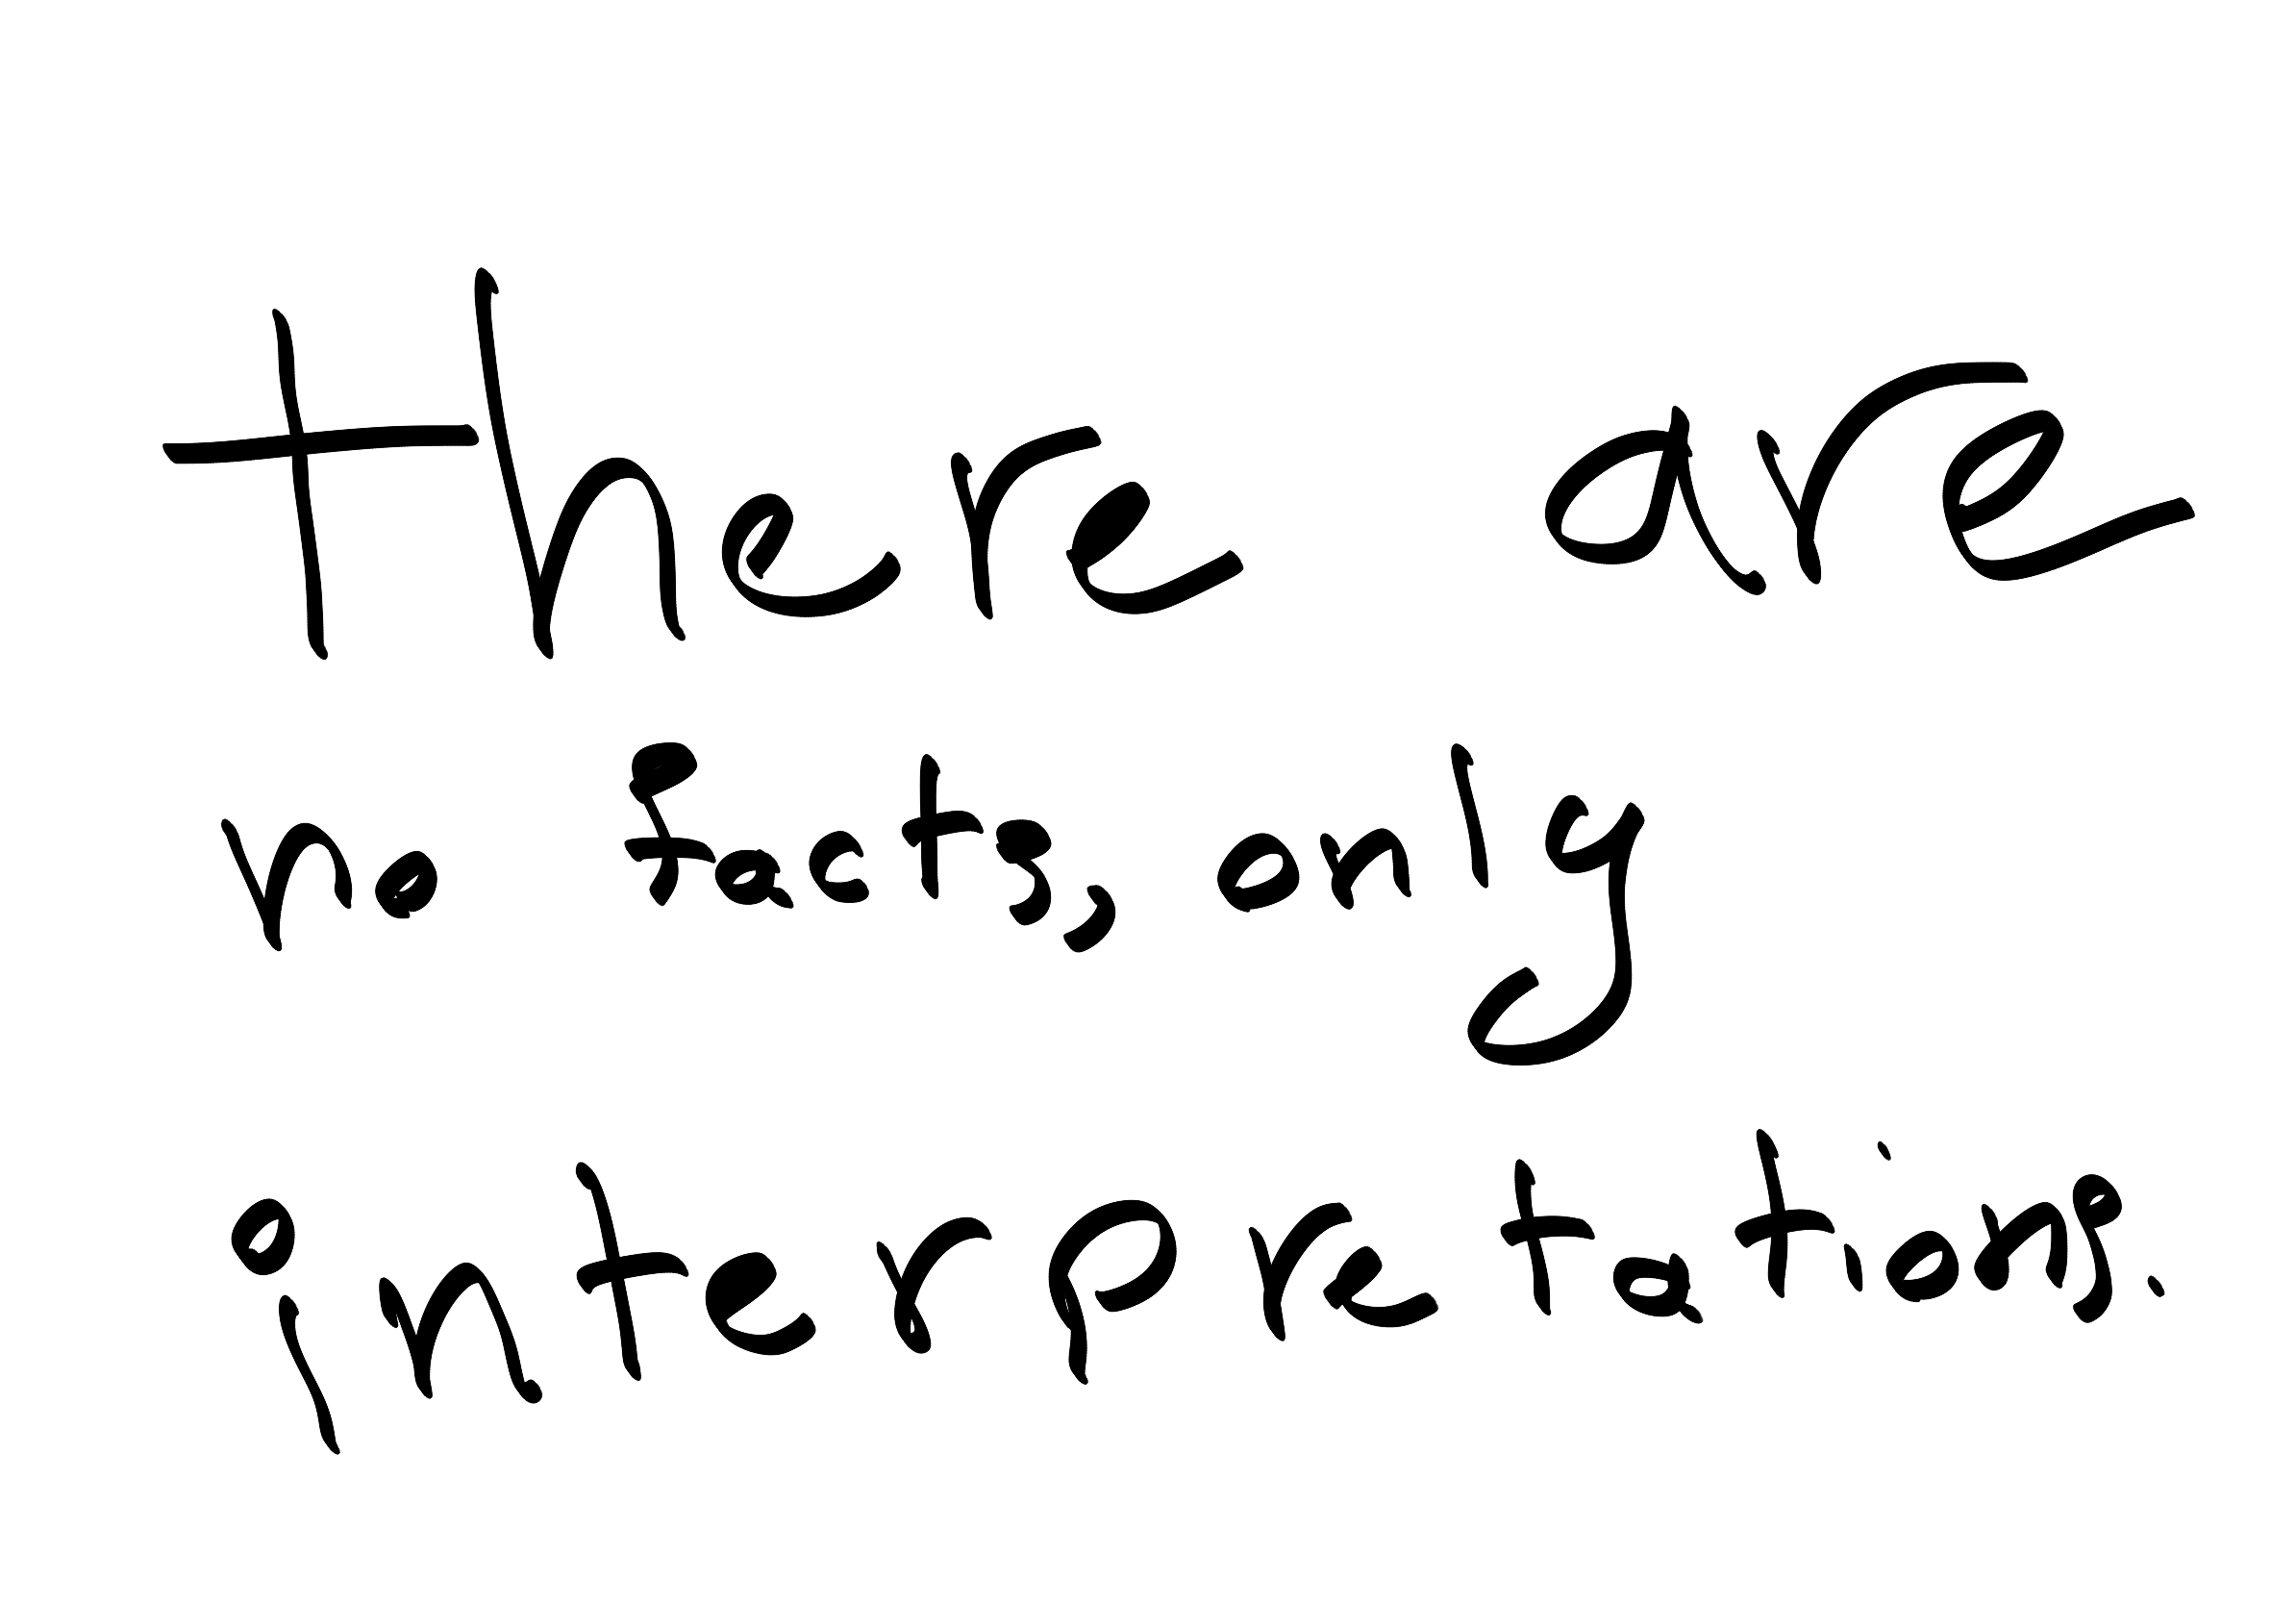 there are
no facts, only
interpretations.